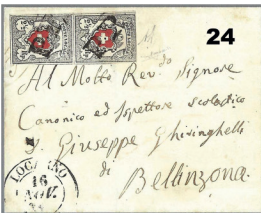 24
Al Molto Rev.do Signore
Canonico ed Ispettore scolastico
Giuseppe Ghiringhelli
di
Bellinzona.
LOCARNO
16
NOV.